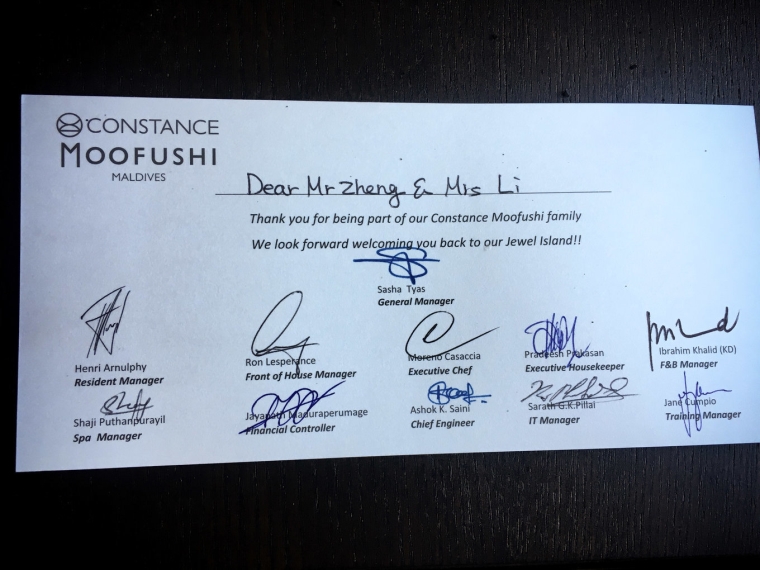 CONSTANCE
MOOFUSHI
MALDIVES
Dear Mr Zheng & Mrs Li
Thank you for being part of our Constance Moofushi family
We look forward welcoming you back to our Jewel Island!!
Sasha Tyas
General Manager
Henri Arnulphy
Resident Manager
Ron Lesperance
Front of House Manager
Moreno Casaccia
Executive Chef
Pradeesh Prakasan
Executive Housekeeper
Ibrahim Khalid (KD)
F&B Manager
Shaji Puthanpurayil
Spa Manager
Jayanath Maduraperumage
Financial Controller
Ashok K. Saini
Chief Engineer
Sarath G.K.Pillai
IT Manager
Jane Cumpio
Training Manager